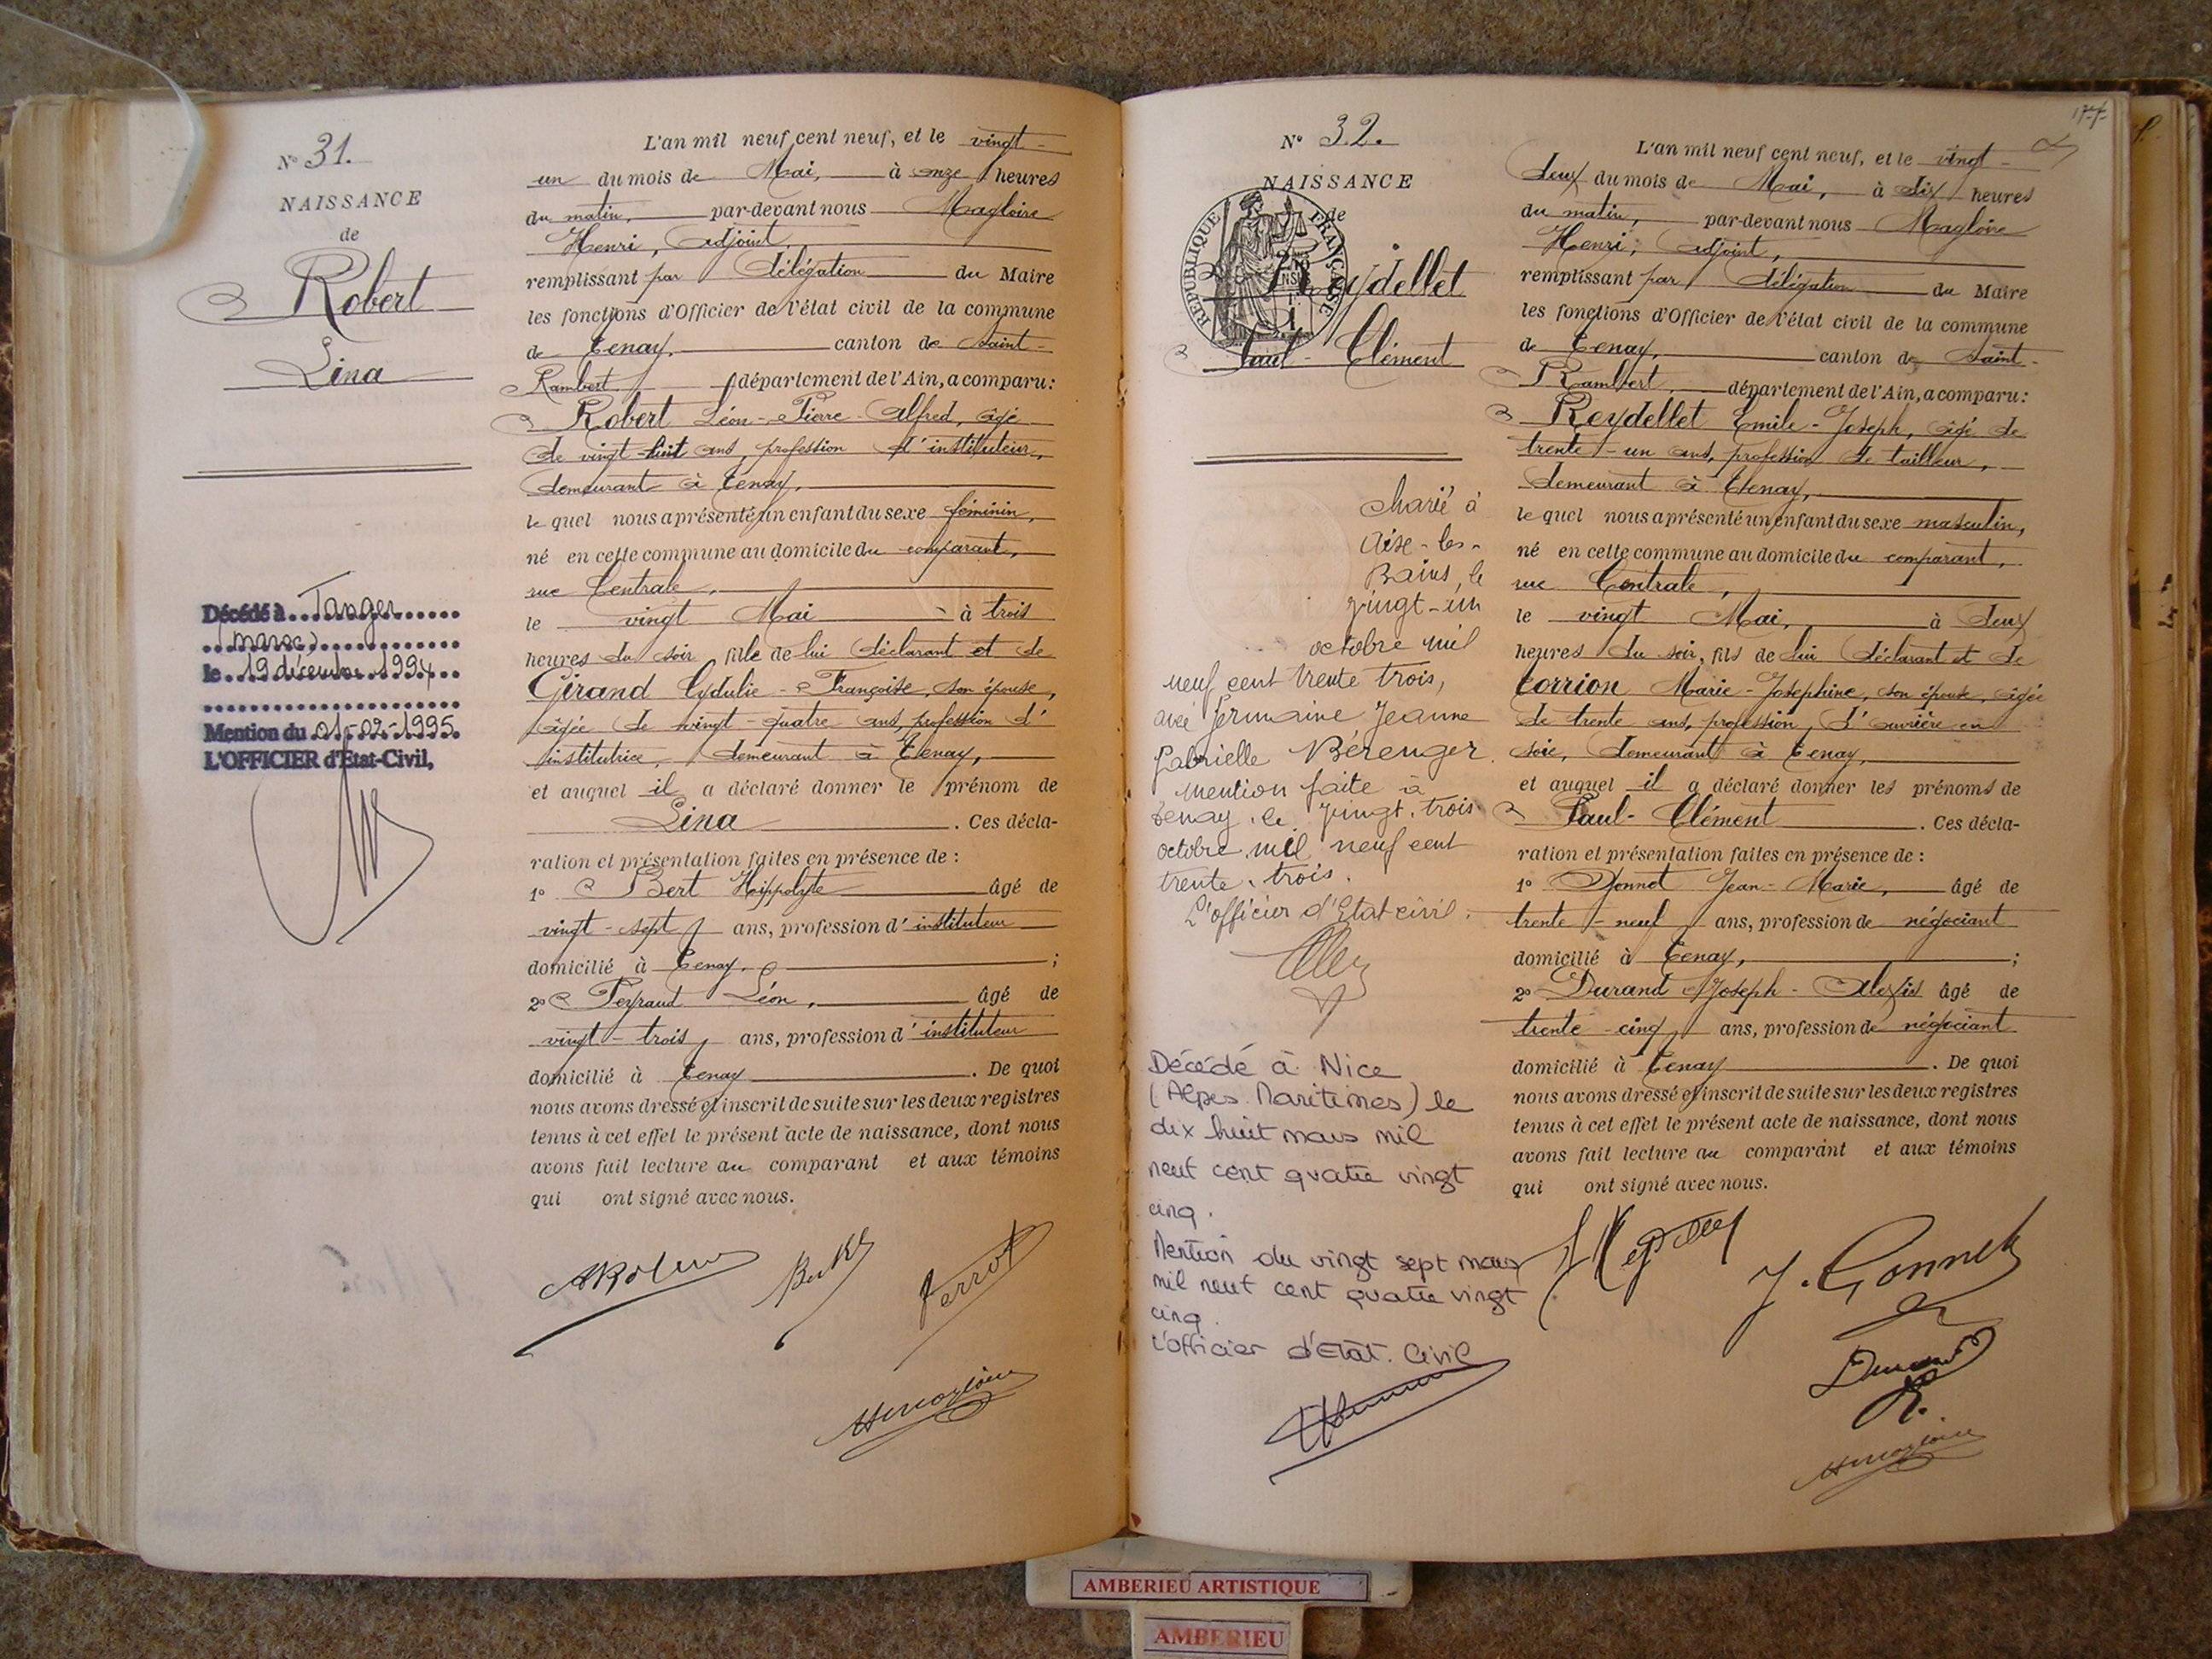 N° 31.
NAISSANCE
de
Robert
Lina
Décédé à Tanger
(Maroc)
le 19 décembre 1994
Mention du 01-02-1995.
L'OFFICIER d'Etat-Civil,
L'an mil neuf cent neuf, et le vingt-
un du mois de Mai, à onze heures
du matin, par-devant nous Magloire
Henri, adjoint,
remplissant par délégation du Maire
les fonctions d'Officier de l'état civil de la commune
de Tenay, canton de Saint-
Rambert, département de l'Ain, a comparu:
Robert Léon-Pierre-Alfred, âgé
de vingt-huit ans, profession d'instituteur,
demeurant à Tenay,
le quel nous a présenté un enfant du sexe féminin,
né en cette commune au domicile du comparant,
rue Centrale,
le vingt Mai à trois
heures du soir, fille de lui déclarant et de
Girand Cydulie-Françoise, son épouse,
âgée de vingt-quatre ans, profession d'
institutrice, demeurant à Tenay,
et auquel il a déclaré donner le prénom de
Lina. Ces décla-
ration et présentation faites en présence de :
1° Bert Hippolyte âgé de
vingt-sept ans, profession d'instituteur
domicilié à Tenay, ;
2° Léon, âgé de
vingt-trois ans, profession d'instituteur
domicilié à Tenay. De quoi
nous avons dressé et inscrit de suite sur les deux registres
tenus à cet effet le présent acte de naissance, dont nous
avons fait lecture au comparant et aux témoins
qui ont signé avec nous.
177
N° 32.
NAISSANCE
de
RÉPUBLIQUE FRANÇAISE
Reydellet
Paul-Clément
Marié à
Aix-les-
Bains, le
vingt-un
octobre mil
neuf cent trente trois,
avec Germaine Jeanne
Gabrielle Bérenger.
Mention faite à
Tenay, le vingt-trois
octobre mil neuf cent
trente-trois.
L'officier d'Etat civil :
Décédé à Nice
(Alpes Maritimes) le
dix huit mars mil
neuf cent quatre vingt
cinq.
Mention du vingt sept mars
mil neuf cent quatre vingt
cinq.
L'officier d'Etat. Civil
L'an mil neuf cent neuf, et le vingt-
deux du mois de Mai, à dix heures
du matin, par-devant nous Magloire
Henri, adjoint,
remplissant par délégation du Maire
les fonctions d'Officier de l'état civil de la commune
de Tenay, canton de Saint-
Rambert, département de l'Ain, a comparu:
Reydellet Emile-Joseph, âgé de
trente-un ans, profession de tailleur,
demeurant à Tenay,
le quel nous a présenté un enfant du sexe masculin,
né en cette commune au domicile du comparant,
rue Centrale,
le vingt Mai, à deux
heures du soir, fils de lui déclarant et de
Corrion Marie-Joséphine, son épouse, âgée
de trente ans, profession d'ouvrière en
soie, demeurant à Tenay,
et auquel il a déclaré donner les prénoms de
Paul-Clément. Ces décla-
ration et présentation faites en présence de :
1° Gonnet Jean-Marie, âgé de
trente-neuf ans, profession de négociant
domicilié à Tenay, ;
2° Durand Joseph-Alexis âgé de
trente-cinq ans, profession de négociant
domicilié à Tenay. De quoi
nous avons dressé et inscrit de suite sur les deux registres
tenus à cet effet le présent acte de naissance, dont nous
avons fait lecture au comparant et aux témoins
qui ont signé avec nous.
J. Gonnet
Durand
AMBERIEU ARTISTIQUE
AMBERIEU